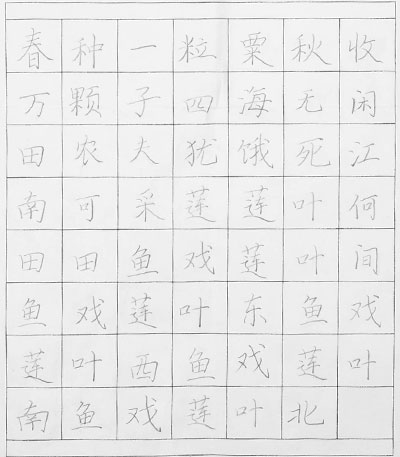 春种一粒粟秋收
万颗子四海无闲
田农夫犹饿死江
南可采莲莲叶何
田田鱼戏莲叶间
鱼戏莲叶东鱼戏
莲叶西鱼戏莲叶
南鱼戏莲叶北